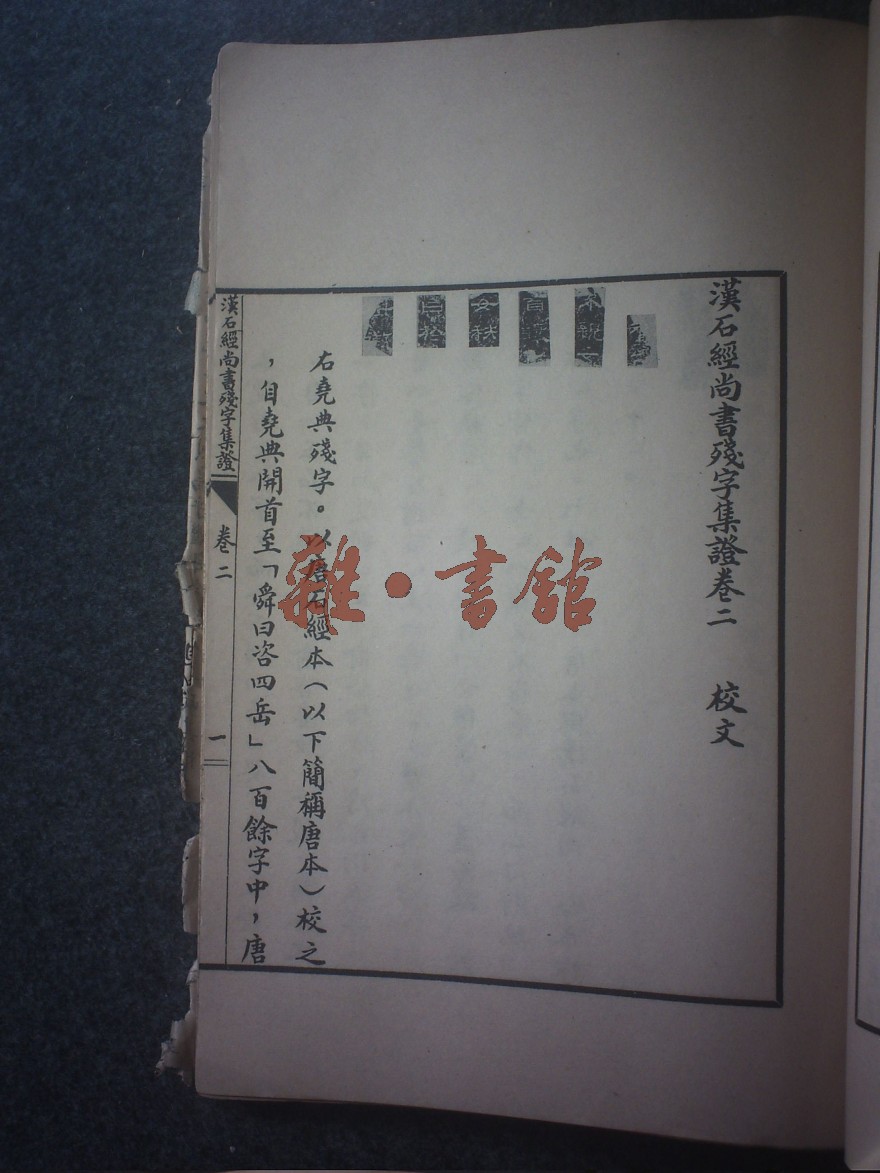 漢石經尚書殘字集證卷二　校文
女秩
曰於
右堯典殘字。以唐石經本（以下簡稱唐本）校之
，自堯典開首至「舜曰咨四岳」八百餘字中，唐
漢石經尚書殘字集證
卷二
一
雜·書館